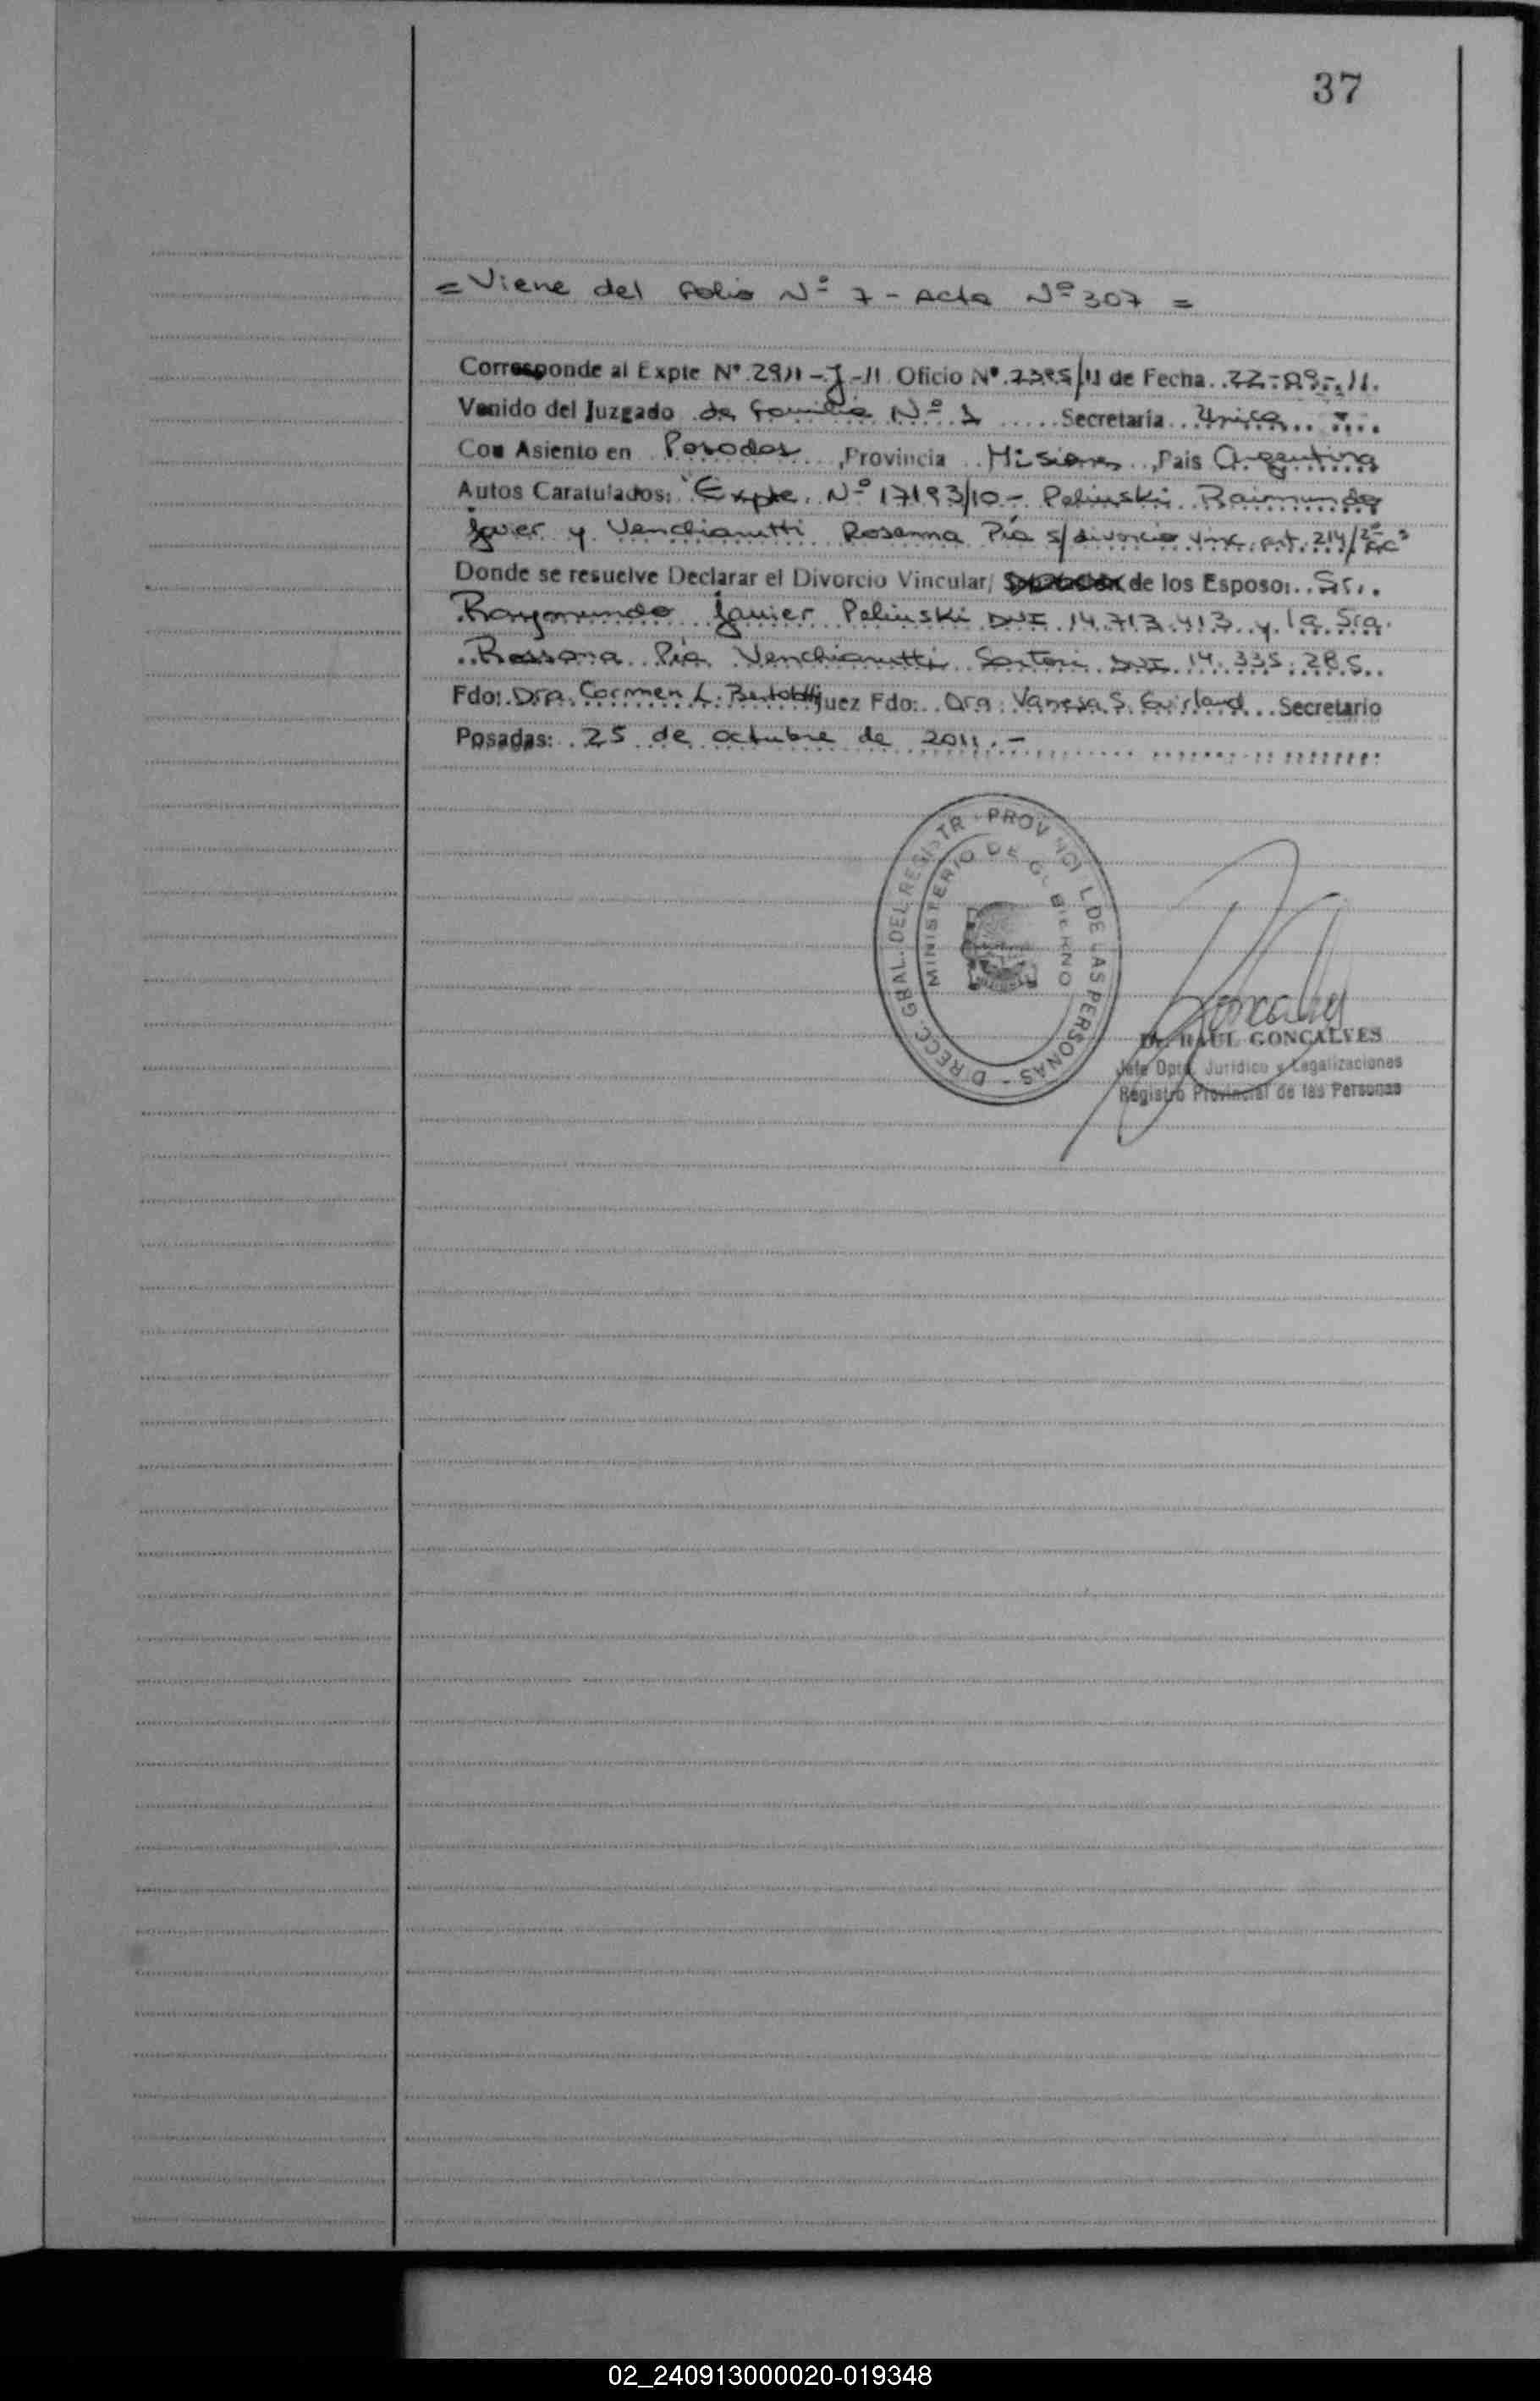 37
= Viene del folio Nº 7 - Acta Nº 307 =
Corresponde al Expte Nº 2911-J-11 Oficio Nº 2395/11 de Fecha 22-09-11.
Venido del Juzgado de familia Nº 1 Secretaría Unica
Con Asiento en Posadas, Provincia Misiones, Pais Argentina
Autos Caratulados: "Expte. Nº 17193/10 - Pelinski Raimundo
Javier y Venchiarutti Rosanna Pía s/divorcio vinc. art. 214/2º
Donde se resuelve Declarar el Divorcio Vincular/ de los Esposo: Sr.
Raymundo Javier Pelinski DNI 14.713.413 y la Sra.
Rossana Pía Venchiarutti Sartori DNI 14.335.285
Fdo: Dra. Carmen L. Juez Fdo: Dra. Vanesa S. Secretario
Posadas: 25 de octubre de 2011.-
DIRECC. GRAL. DEL REGISTR PROVINCIAL DE LAS PERSONAS -
MINISTERIO DE GOBIERNO
Dr. RAUL GONCALVES
Jefe Dpto. Jurídico y Legalizaciones
Registro Provincial de las Personas
02_240913000020-019348